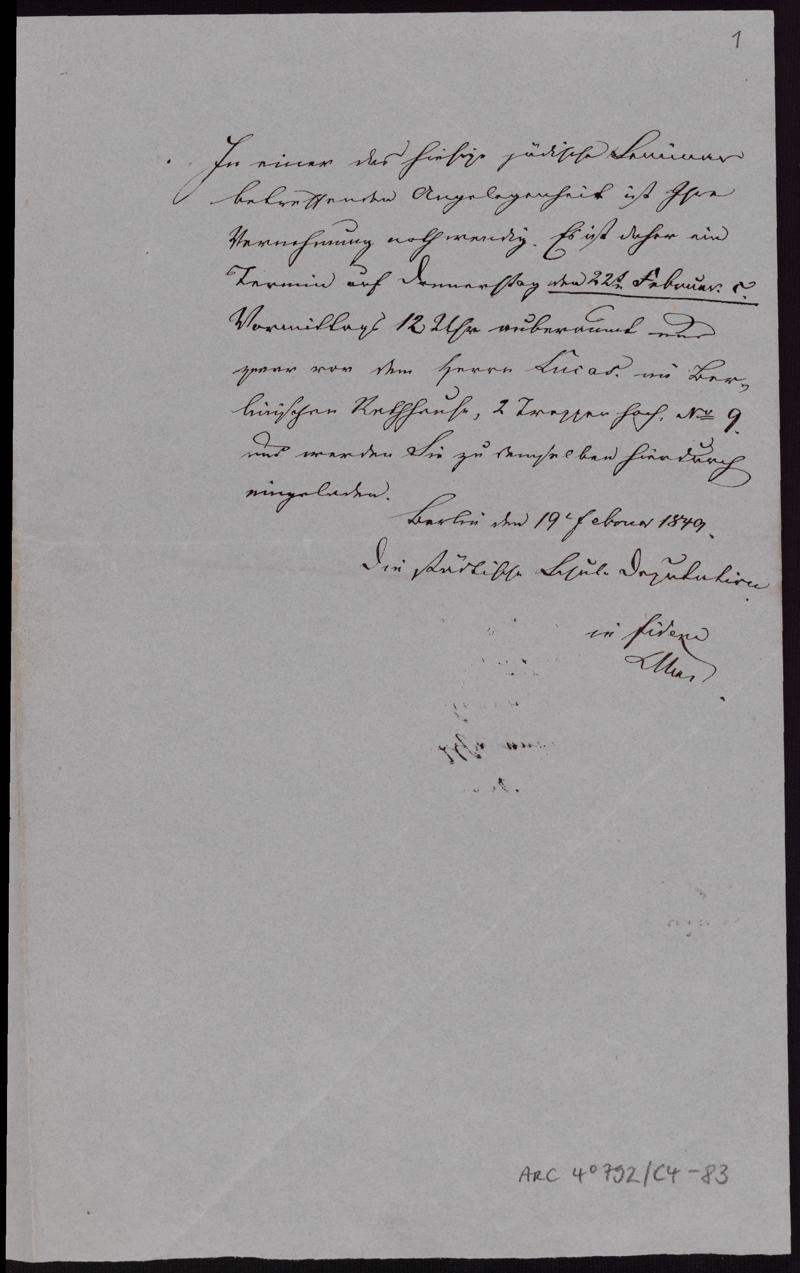 1
In einer das hiesige jüdische Seminar
betreffenden Angelegenheit ist Ihre
Vernehmung nothwendig. Es ist daher ein
Termin auf Donnerstag den 22t Februar c.
Vormittags 12 Uhr anberaumt und
zwar vor dem Herrn Lucas im Ber-
linischen Rathhause, 2 Treppen hoch, No 9.
und werden Sie zu demselben hierdurch
eingeladen.
Berlin den 19t Februar 1849.
Die städtische Schul-Deputation
in fidem
ARC 4º 792/C4-83